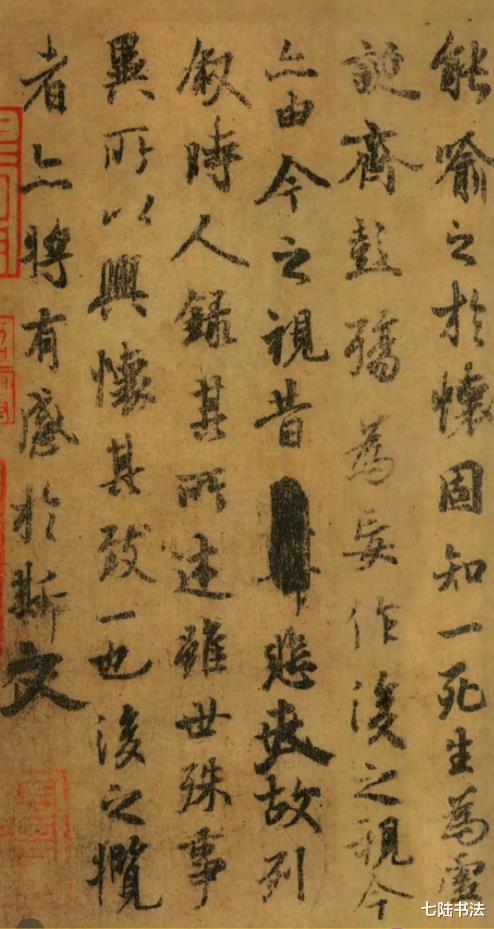 能喻之於懷固知一死生為虛
誕齊彭殤為妄作後之視今
亦由今之視昔悲夫故列
敘時人錄其所述雖世殊事
異所以興懷其致一也後之攬
者亦將有感於斯文
七陆书法